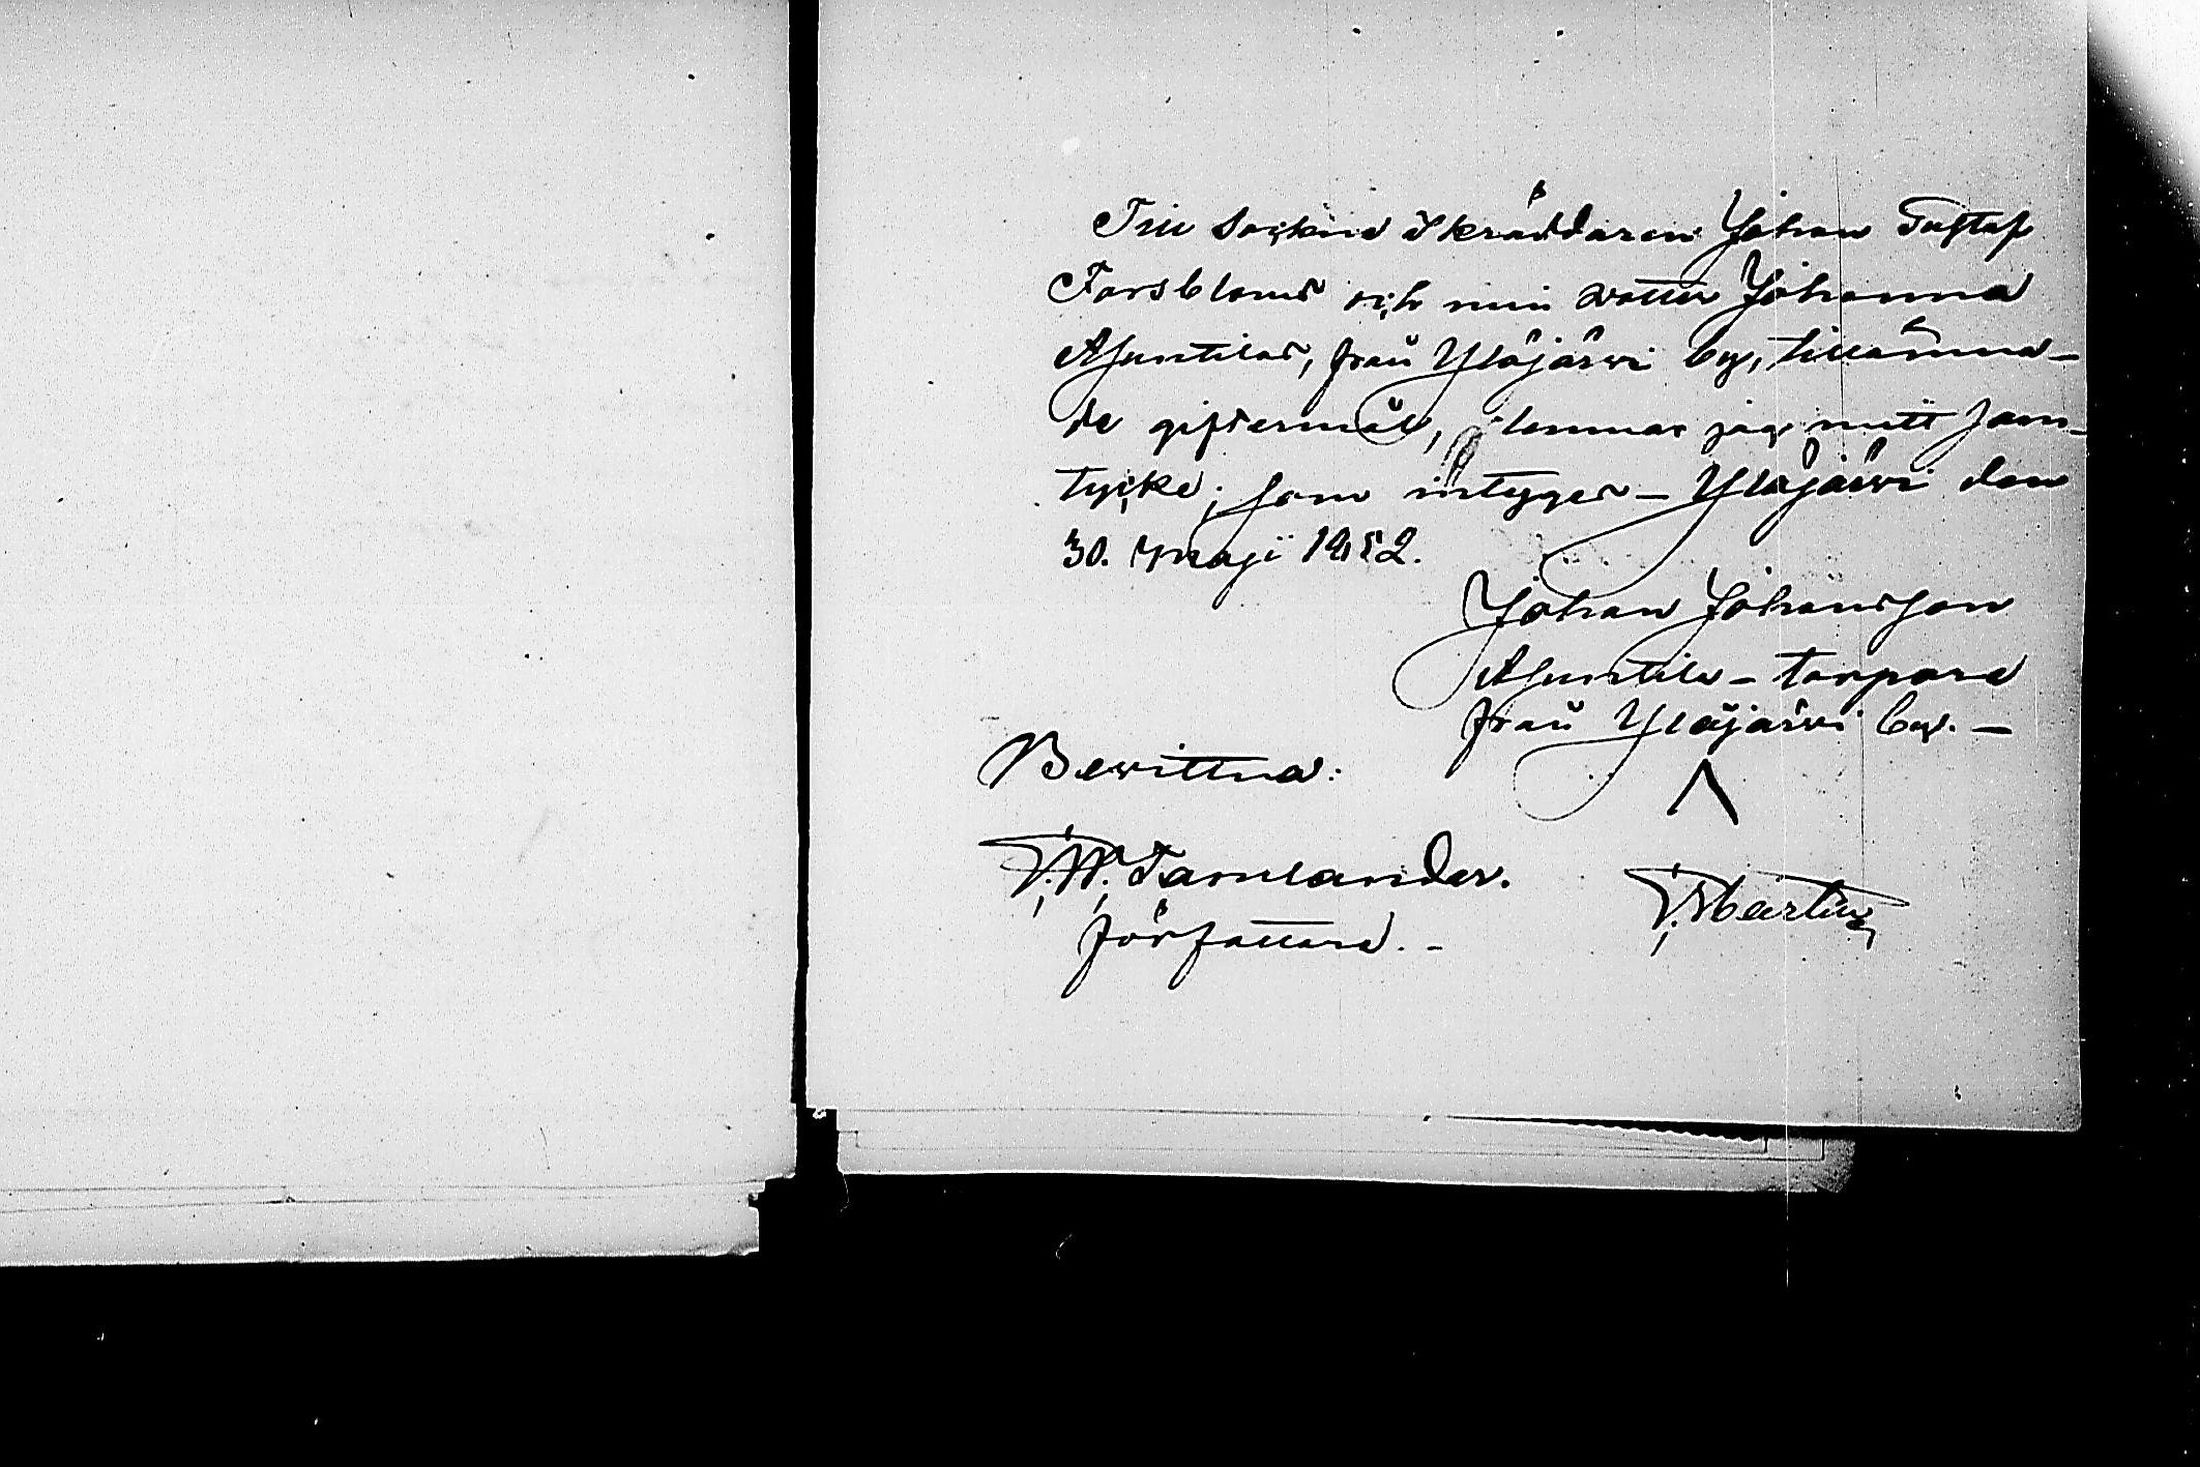 Till Sockne Skräddaren Johan Gustaf
Forsbloms och min dotter Johanna
Ajuntilas, från Ylöjärvi by, tillämna-
de giftermål, lemnar jag mitt sam-
tycke; som intygas – Ylöjärvi den
30. Maji 1852.
Johan Johansson
Ajuntila – torpare
från Ylöjärvi by. –
Bevittna:
Tamlander.
författare. –
Martin